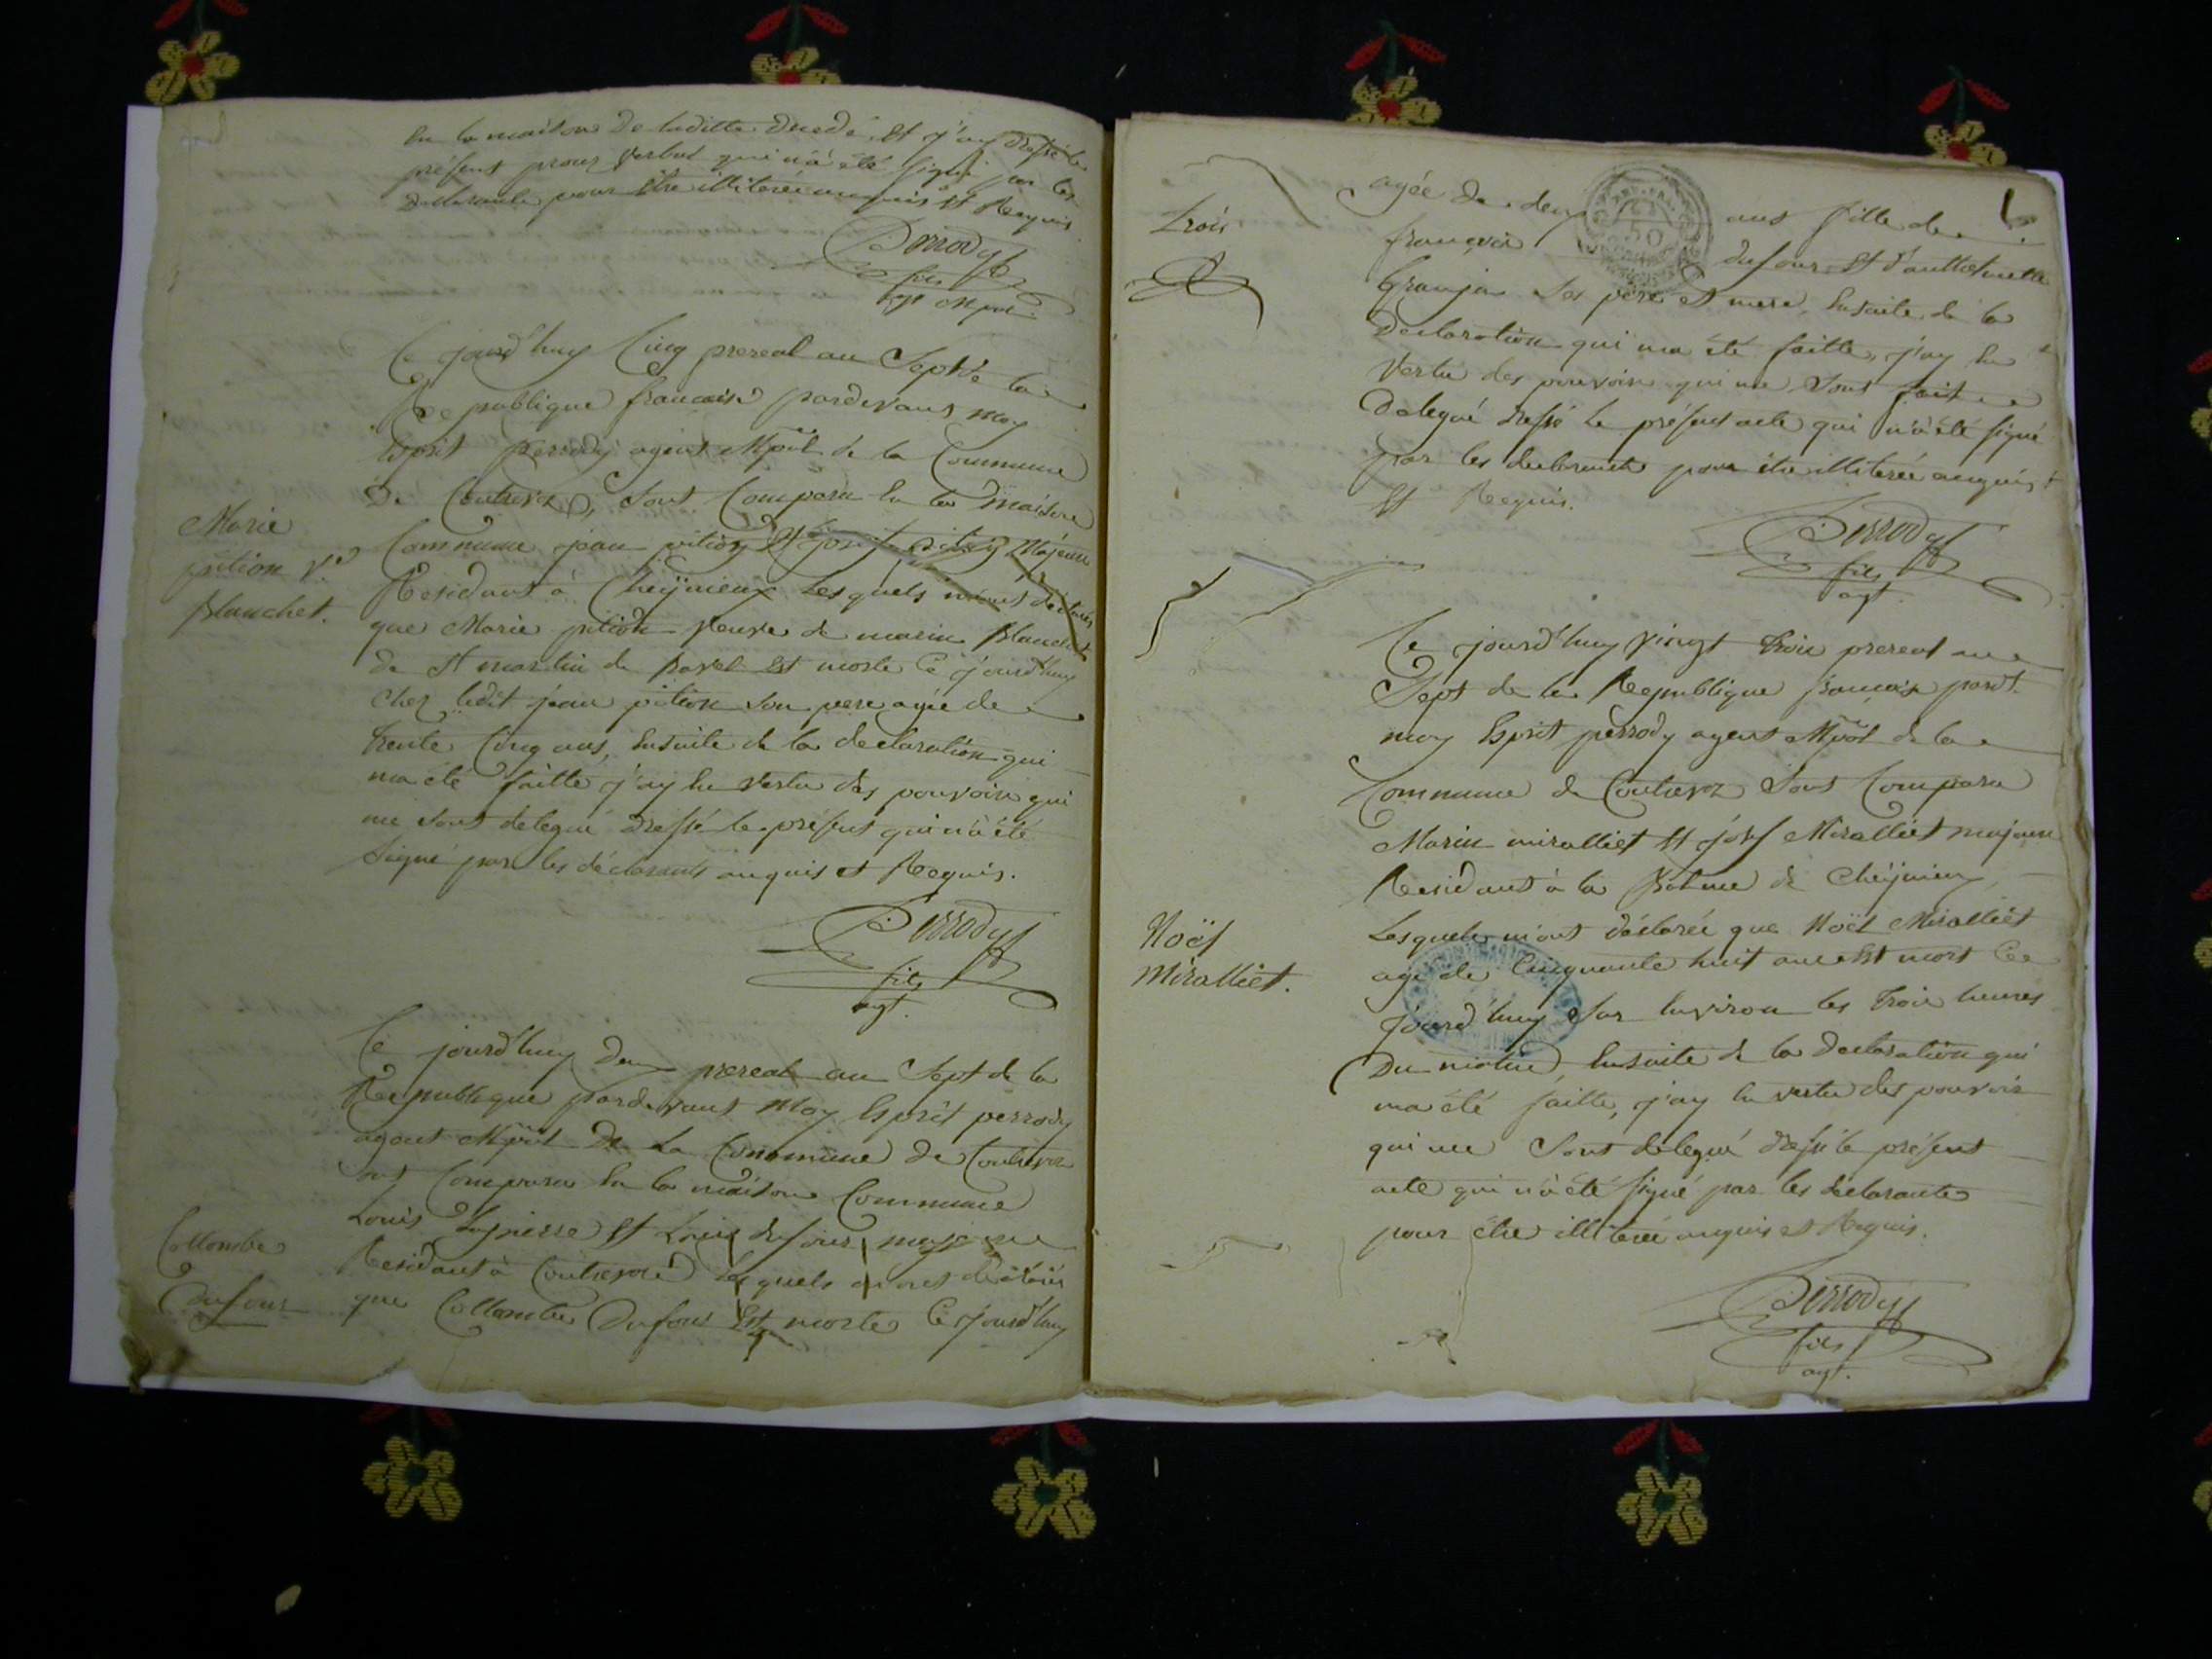 En la maison de laditte decedé Et j'ay dressé le
présent procez verbal qui n'a été signé par les
déclarants pour être illiterée enquis Et Requis
Perrody
fils
agt Mpal
Ce jourd'huy Cinq prereal an Sept de la
République francaise pardevant moy
Esprit perrody agent Mpâl de la Commune
De Contrevoz, sont Comparu En la maison
Commune jean pition Et josef pition Majeurs
Residant à Cheÿnieux Lesquels m'ont déclarés
Marie
pition Ve
Blanchet.
que Marie pition Veuve de marin Blanchet
de St martin de Bavel Est morte Ce jourd'huy
chez ledit jean pition son pere agée de
trente Cinq ans, Ensuite de la declaration qui
ma été faitte j'ay En vertu des pouvoirs qui
me sont delegué dressé le présent qui n'a été
signé par les déclarants enquis et Requis.
Perrody
fils
agt.
Ce jourd'huy deux prereal an Sept de la
Republique pardevant Moy Esprit perrody
agent Mpâl De La Commune de Contrevoz
sont Comparu En la maison Commune
Louis Lapierre Et Louis dufour majeurs
Residant à Contrevoz Lesquels m'ont déclarés
Collombe
Dufour
que Collombe Dufour Est morte Ce jourd'huy
1
trois
agée de deux ans fille de
françois dufour Et d'anthelmette
Granjon ses père et mere, Ensuite de la
Declaration qui ma été faitte, j'ay En
Vertu des pouvoirs qui me sont
Delegué dressé le présent acte qui n'a été signé
par les declarants pour être illiterée enquis
Et Requis.
Perrody
fils
agt.
Ce jourd'huy vingt trois prereal an
Sept de la Republique françoise pardt.
moy Esprit perrody agent Mpâl de la
Commune de Contrevoz sont Comparu
Marin miralliet Et josef Miralliet majeurs
Residant à la Balme de Cheÿnieux
Noël
Miralliet.
Lesquels m'ont déclarée que Noël Miralliet
agé de Cinquante huit ans Est mort Ce
jourd'huy sur Environ les trois heures
Du matin, Ensuite de la declaration qui
ma été faitte, j'ay En vertu des pouvoir
qui me sont delegué dressé le présent
acte qui n'a été signé par les declarants
pour être illiterée enquis et Requis.
Perrody
fils
agt.